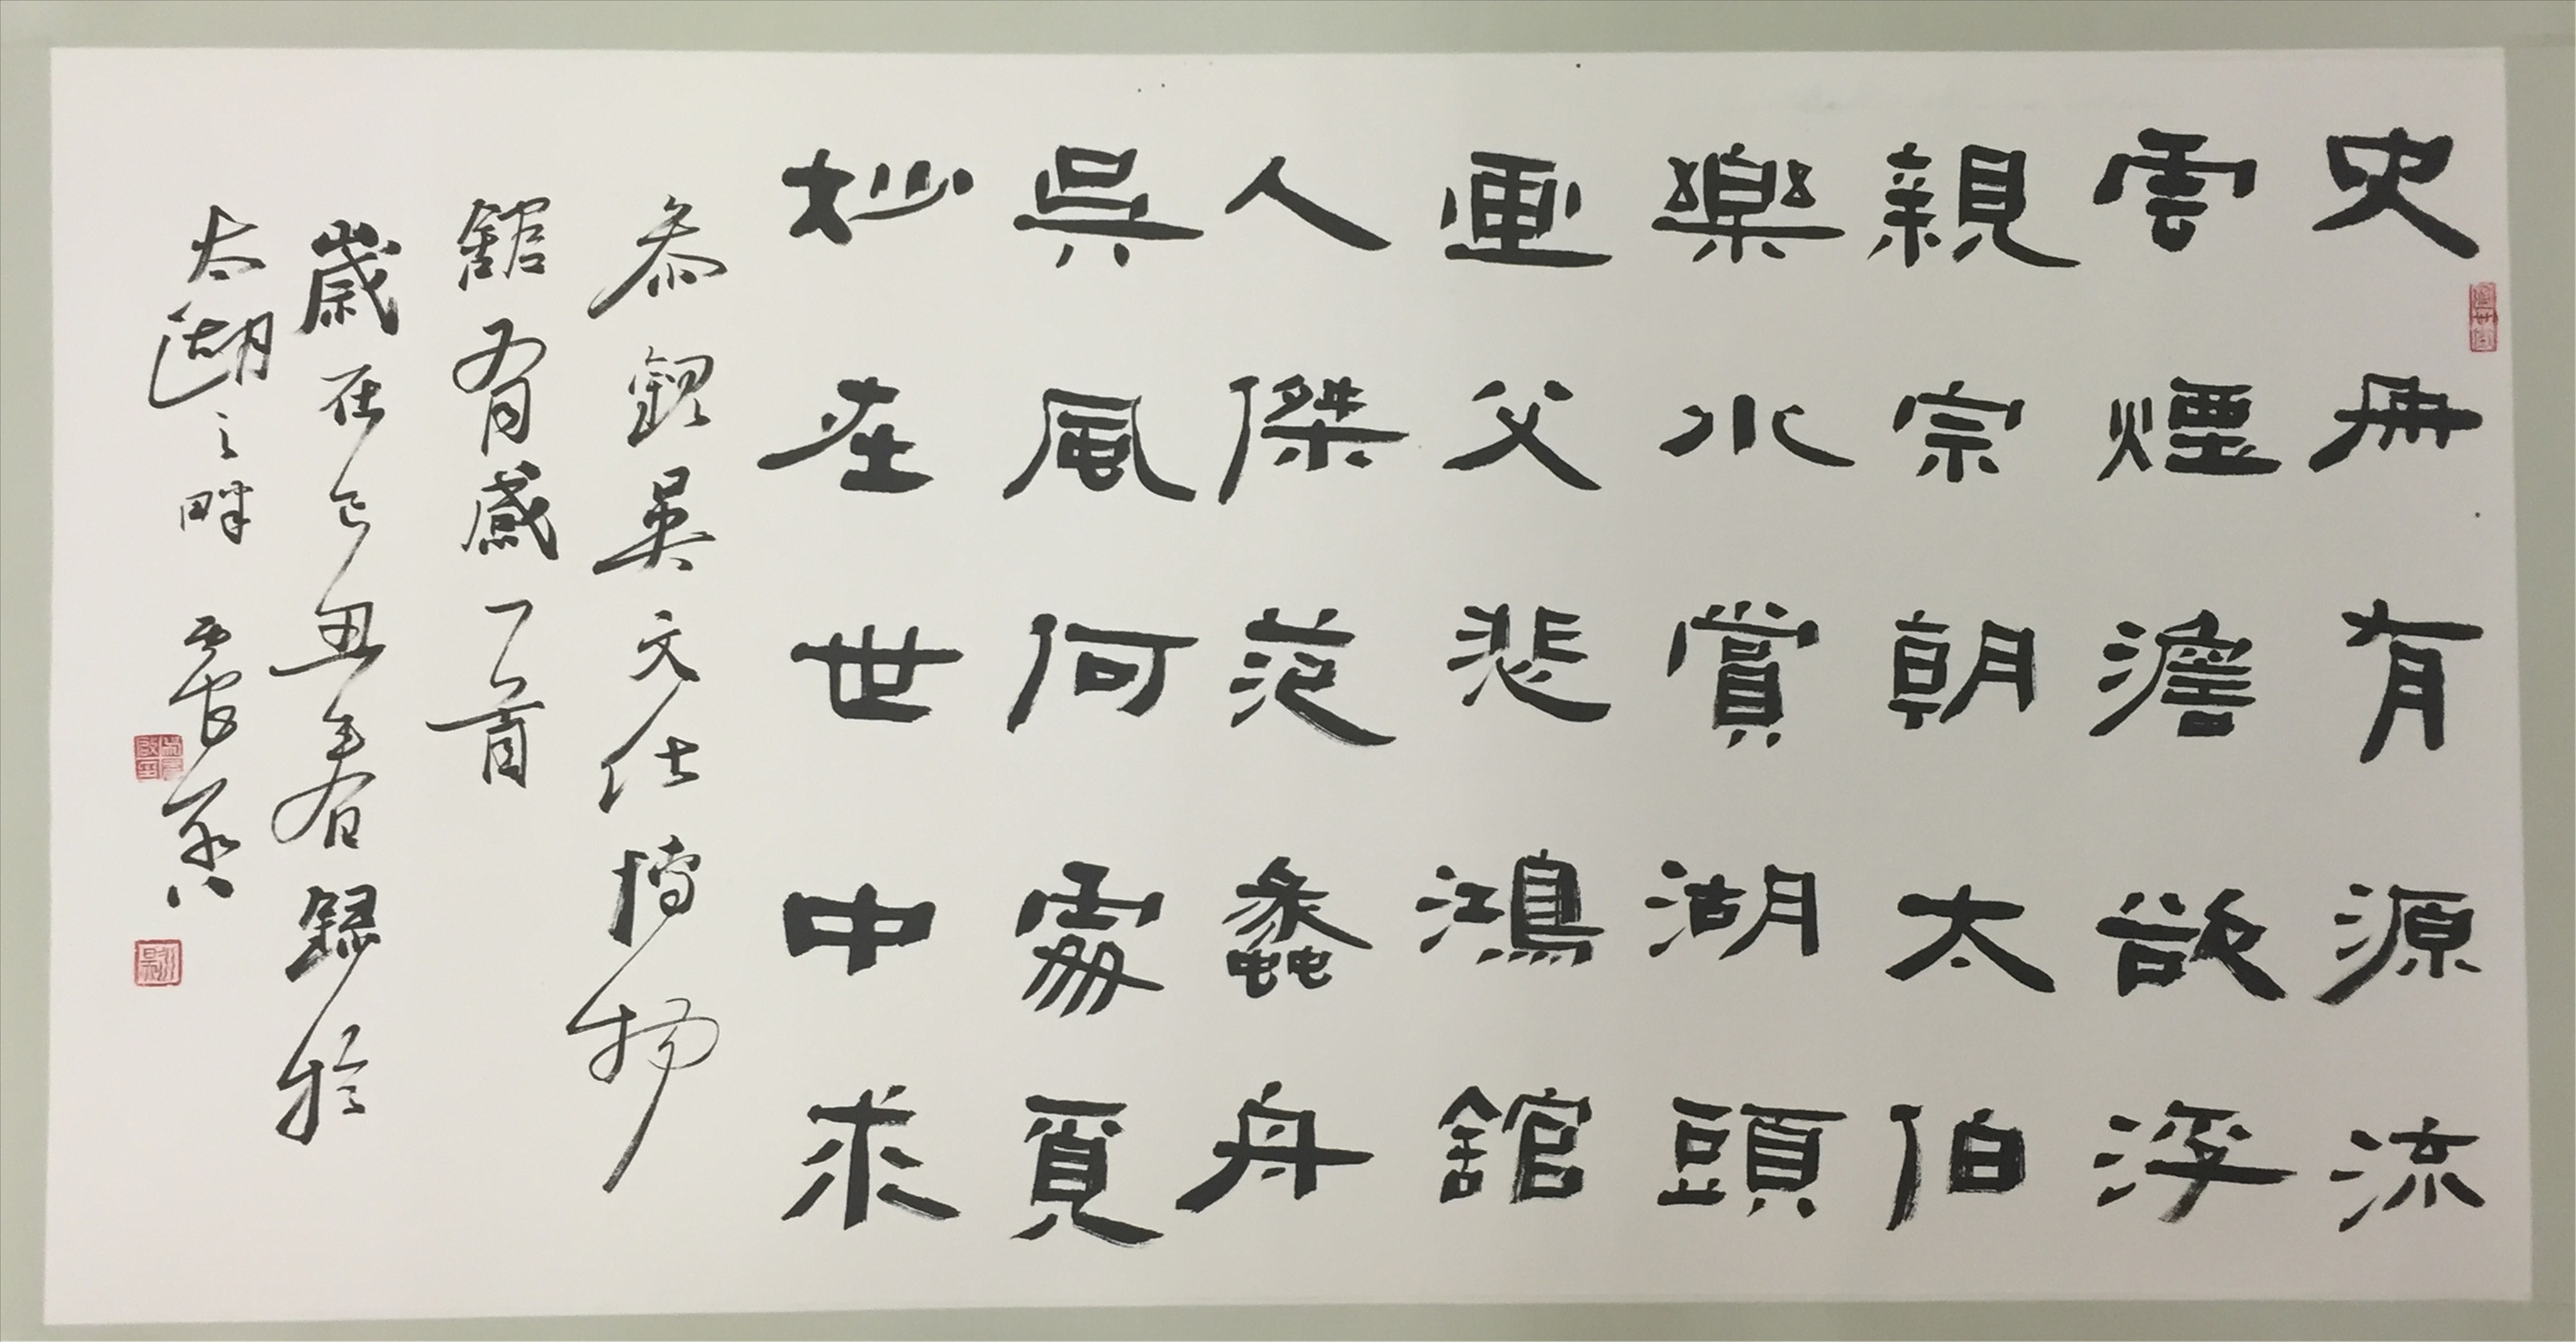 史册有源流
雲煙澹欲浮
親宗朝太伯
樂水賞湖頭
画父悲鴻館
人傑范蠡舟
吳風何處覓
妙在世中求
參觀吳文化博物
館有感一首
歲在己丑春錄於
太湖之畔